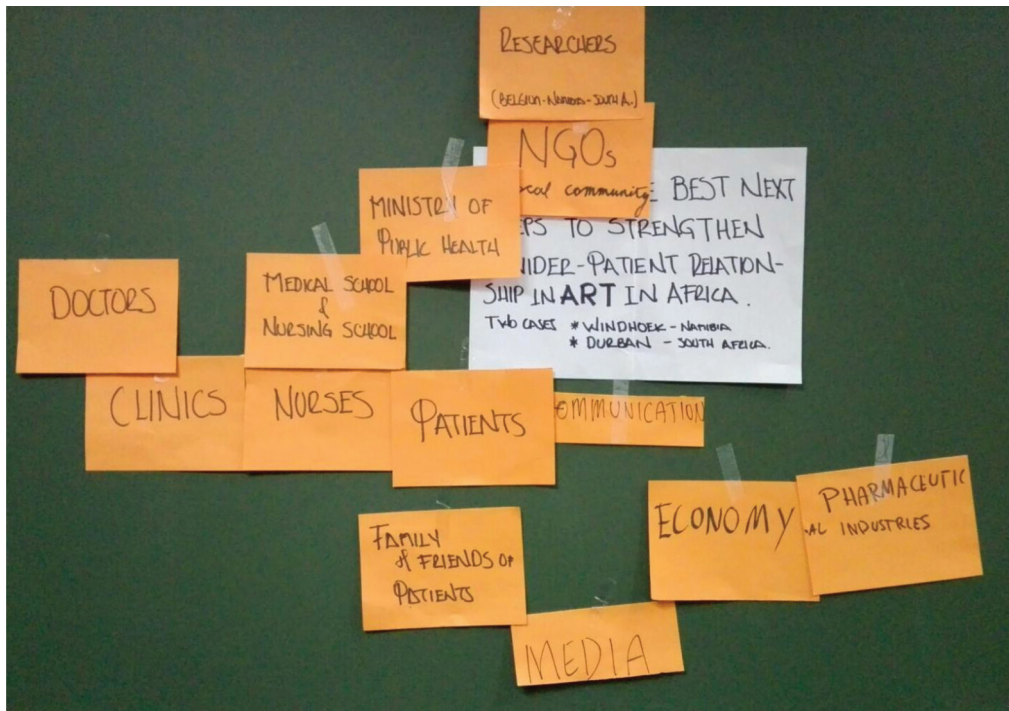 RESEARCHERS
(BELGIUM-NAMIBIA-SOUTH A.)
NGOs
ocal community
E BEST NEXT
EPS TO STRENGTHEN
VIDER-PATIENT RELATION-
SHIP IN ART IN AFRICA.
TWO CASES * WINDHOEK - NAMIBIA
* DURBAN - SOUTH AFRICA.
MINISTRY OF
PUBLIC HEALTH
MEDICAL SCHOOL
&
NURSING SCHOOL
DOCTORS
CLINICS
NURSES
PATIENTS
OMMUNICATION
ECONOMY
PHARMACEUTIC
AL INDUSTRIES
FAMILY
& FRIENDS OF
PATIENTS
MEDIA